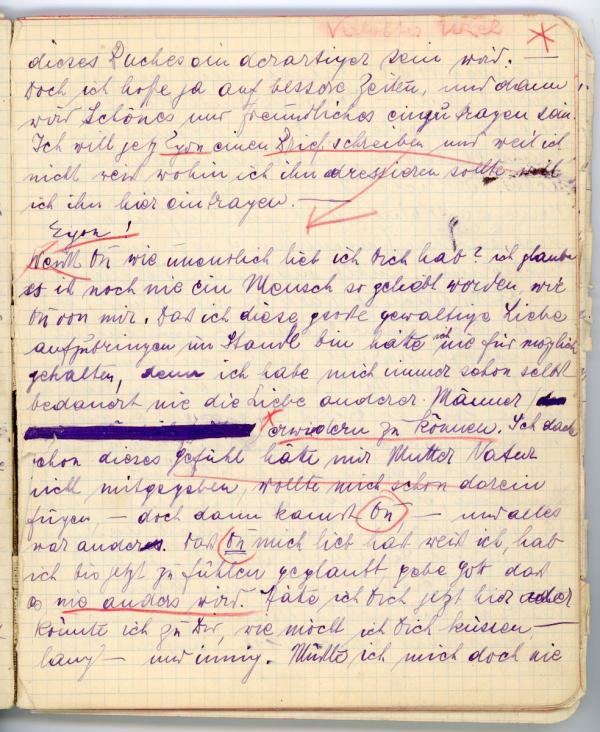 dieses Buches ein derartiger sein wird. —
Doch ich hoffe ja auf bessere Zeiten, und dann
wird Schönes und Freundliches einzutragen sein.
Ich will jetzt Egon einen Brief schreiben und weil ich
nicht weis wohin ich ihn adressieren sollte will
ich ihn hier eintragen. —
Egon!
Weist Du wie unendlich lieb ich Dich hab? ich glaube
es ist noch nie ein Mensch so geliebt worden, wie
Du von mir. Das ich diese große gewaltige Liebe
aufzubringen im Stande bin hätte ich nie für möglich
gehalten, denn ich habe mich immer schon selbst
bedauert nie die Liebe anderer Männer
erwidern zu können. Ich dachte
schon dieses Gefühl hätte mir Mutter Natur
nicht mitgegeben, wollte mich schon darein
fügen, — doch dann kamst Du — und alles
war anders. Das Du mich lieb hast weis ich, hab
ich bis jetzt zu fühlen geglaubt, gebe Gott das
es nie anders wird. Hätte ich Dich jetzt hier oder
könnte ich zu Dir, wie möcht ich Dich küssen —
lang — und innig. Müßte ich mich doch nie